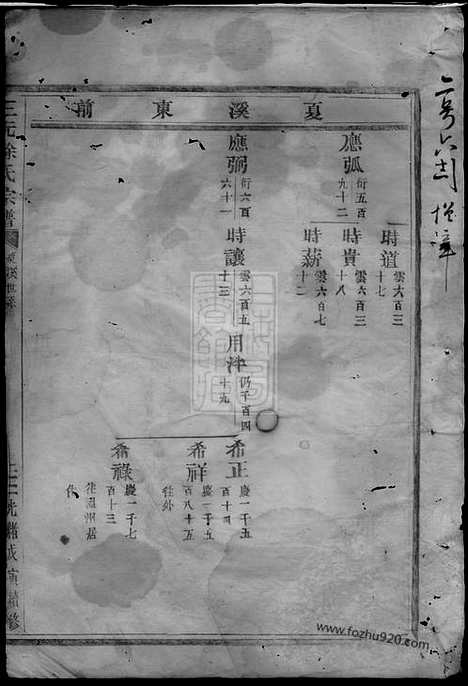 夏溪東前
應弧
衍五百
九十二
應弼
衍六百
六十一
時道
雲六百三
十七
時貴
雲六百三
十八
時薪
雲六百七
十二
時讓
雲六百五
十三
用泮
仍千百四
十九
希正
慶一千五
百十四
希祥
慶一千五
百八十五
往外
希祿
慶一千七
百十三
往溫州居
住
三元徐氏宗譜
光緒戊寅續修
www.fozhu920.com